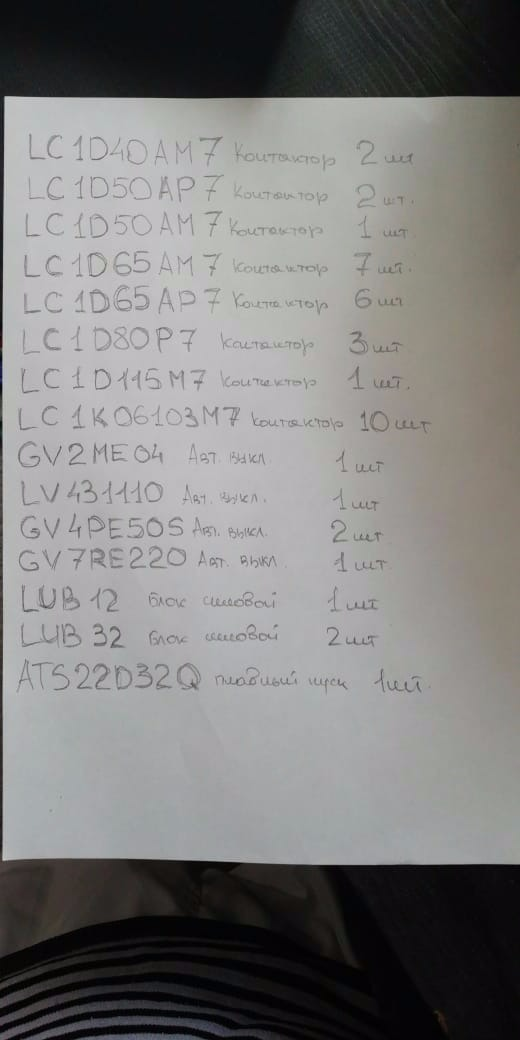 LC1D40AM7 Контактор 2 шт
LC1D50AP7 Контактор 2 шт.
LC1D50AM7 Контактор 1 шт
LC1D65AM7 Контактор 7 шт.
LC1D65AP7 Контактор 6 шт
LC1D80P7 Контактор 3 шт
LC1D115M7 Контактор 1 шт.
LC1K06103M7 Контактор 10 шт
GV2ME04 Авт. выкл 1 шт
LV431110 Авт. выкл. 1 шт
GV4PE50S Авт. выкл. 2 шт
GV7RE220 Авт. выкл. 1 шт
LUB12 блок силовой 1 шт
LUB32 блок силовой 2 шт
ATS22D32Q плавный пуск 1 шт.